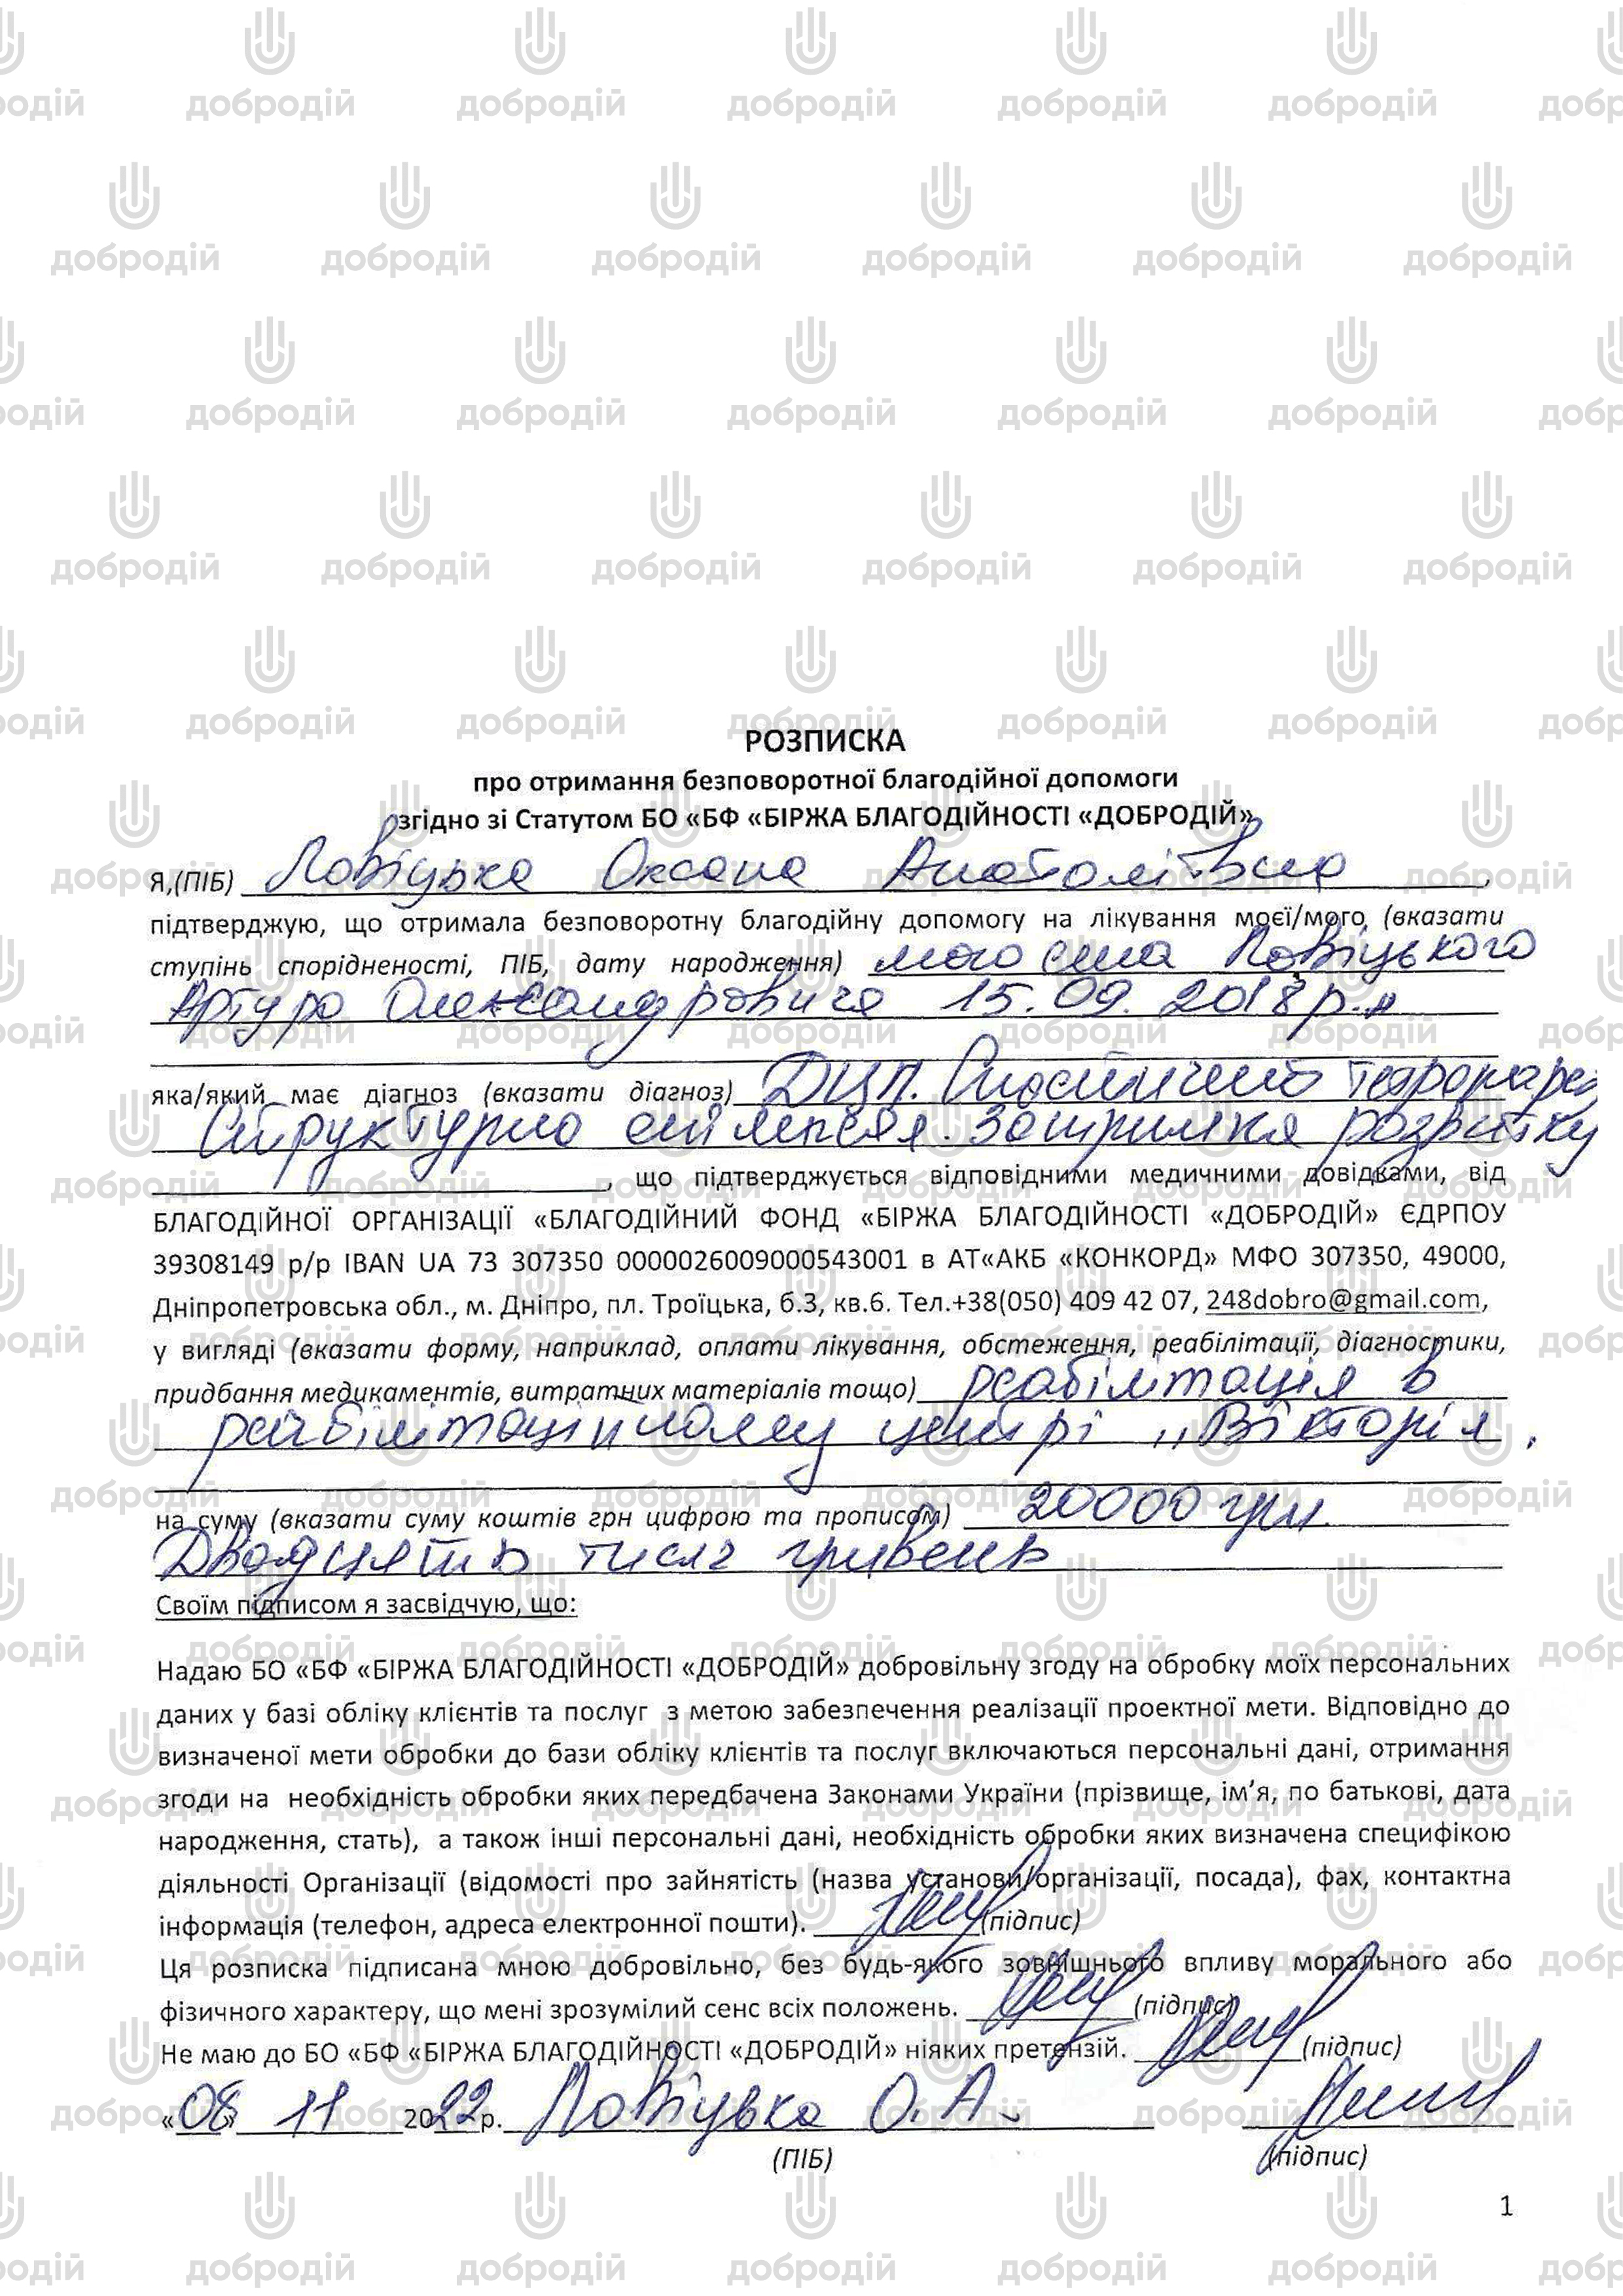 РОЗПИСКА
про отримання безповоротної благодійної допомоги
згідно зі Статутом БО «БФ «БІРЖА БЛАГОДІЙНОСТІ «ДОБРОДІЙ»
Я,(ПІБ) Ловіцька Оксана Анатоліївна,
підтверджую, що отримала безповоротну благодійну допомогу на лікування моєї/мого (вказати
ступінь спорідненості, ПІБ, дату народження) мого сина Ловіцького
Артура Олександровича 15.09.2018р.н
яка/який має діагноз (вказати діагноз) ДЦП. Спастичний тетрапарез
Структурна епілепсія. Затримка розвитку
, що підтверджується відповідними медичними довідками, від
БЛАГОДІЙНОЇ ОРГАНІЗАЦІЇ «БЛАГОДІЙНИЙ ФОНД «БІРЖА БЛАГОДІЙНОСТІ «ДОБРОДІЙ» ЄДРПОУ
39308149 р/р IBAN UA 73 307350 0000026009000543001 в АТ«АКБ «КОНКОРД» МФО 307350, 49000,
Дніпропетровська обл., м. Дніпро, пл. Троїцька, б.3, кв.6. Тел.+38(050) 409 42 07, 248dobro@gmail.com,
у вигляді (вказати форму, наприклад, оплати лікування, обстеження, реабілітації, діагностики,
придбання медикаментів, витратних матеріалів тощо) реабілітація в
реабілітаційному центрі ,,Вікторія,
на суму (вказати суму коштів грн цифрою та прописом) 20000 грн.
Двадцять тисяч гривень
Своїм підписом я засвідчую, що:
Надаю БО «БФ «БІРЖА БЛАГОДІЙНОСТІ «ДОБРОДІЙ» добровільну згоду на обробку моїх персональних
даних у базі обліку клієнтів та послуг з метою забезпечення реалізації проектної мети. Відповідно до
визначеної мети обробки до бази обліку клієнтів та послуг включаються персональні дані, отримання
згоди на необхідність обробки яких передбачена Законами України (прізвище, ім’я, по батькові, дата
народження, стать), а також інші персональні дані, необхідність обробки яких визначена специфікою
діяльності Організації (відомості про зайнятість (назва установи/організації, посада), фах, контактна
інформація (телефон, адреса електронної пошти). (підпис)
Ця розписка підписана мною добровільно, без будь-якого зовнішнього впливу морального або
фізичного характеру, що мені зрозумілий сенс всіх положень. (підпис)
Не маю до БО «БФ «БІРЖА БЛАГОДІЙНОСТІ «ДОБРОДІЙ» ніяких претензій. (підпис)
«08» 11 2022р. Ловіцька О.А.
(ПІБ) (підпис)
1